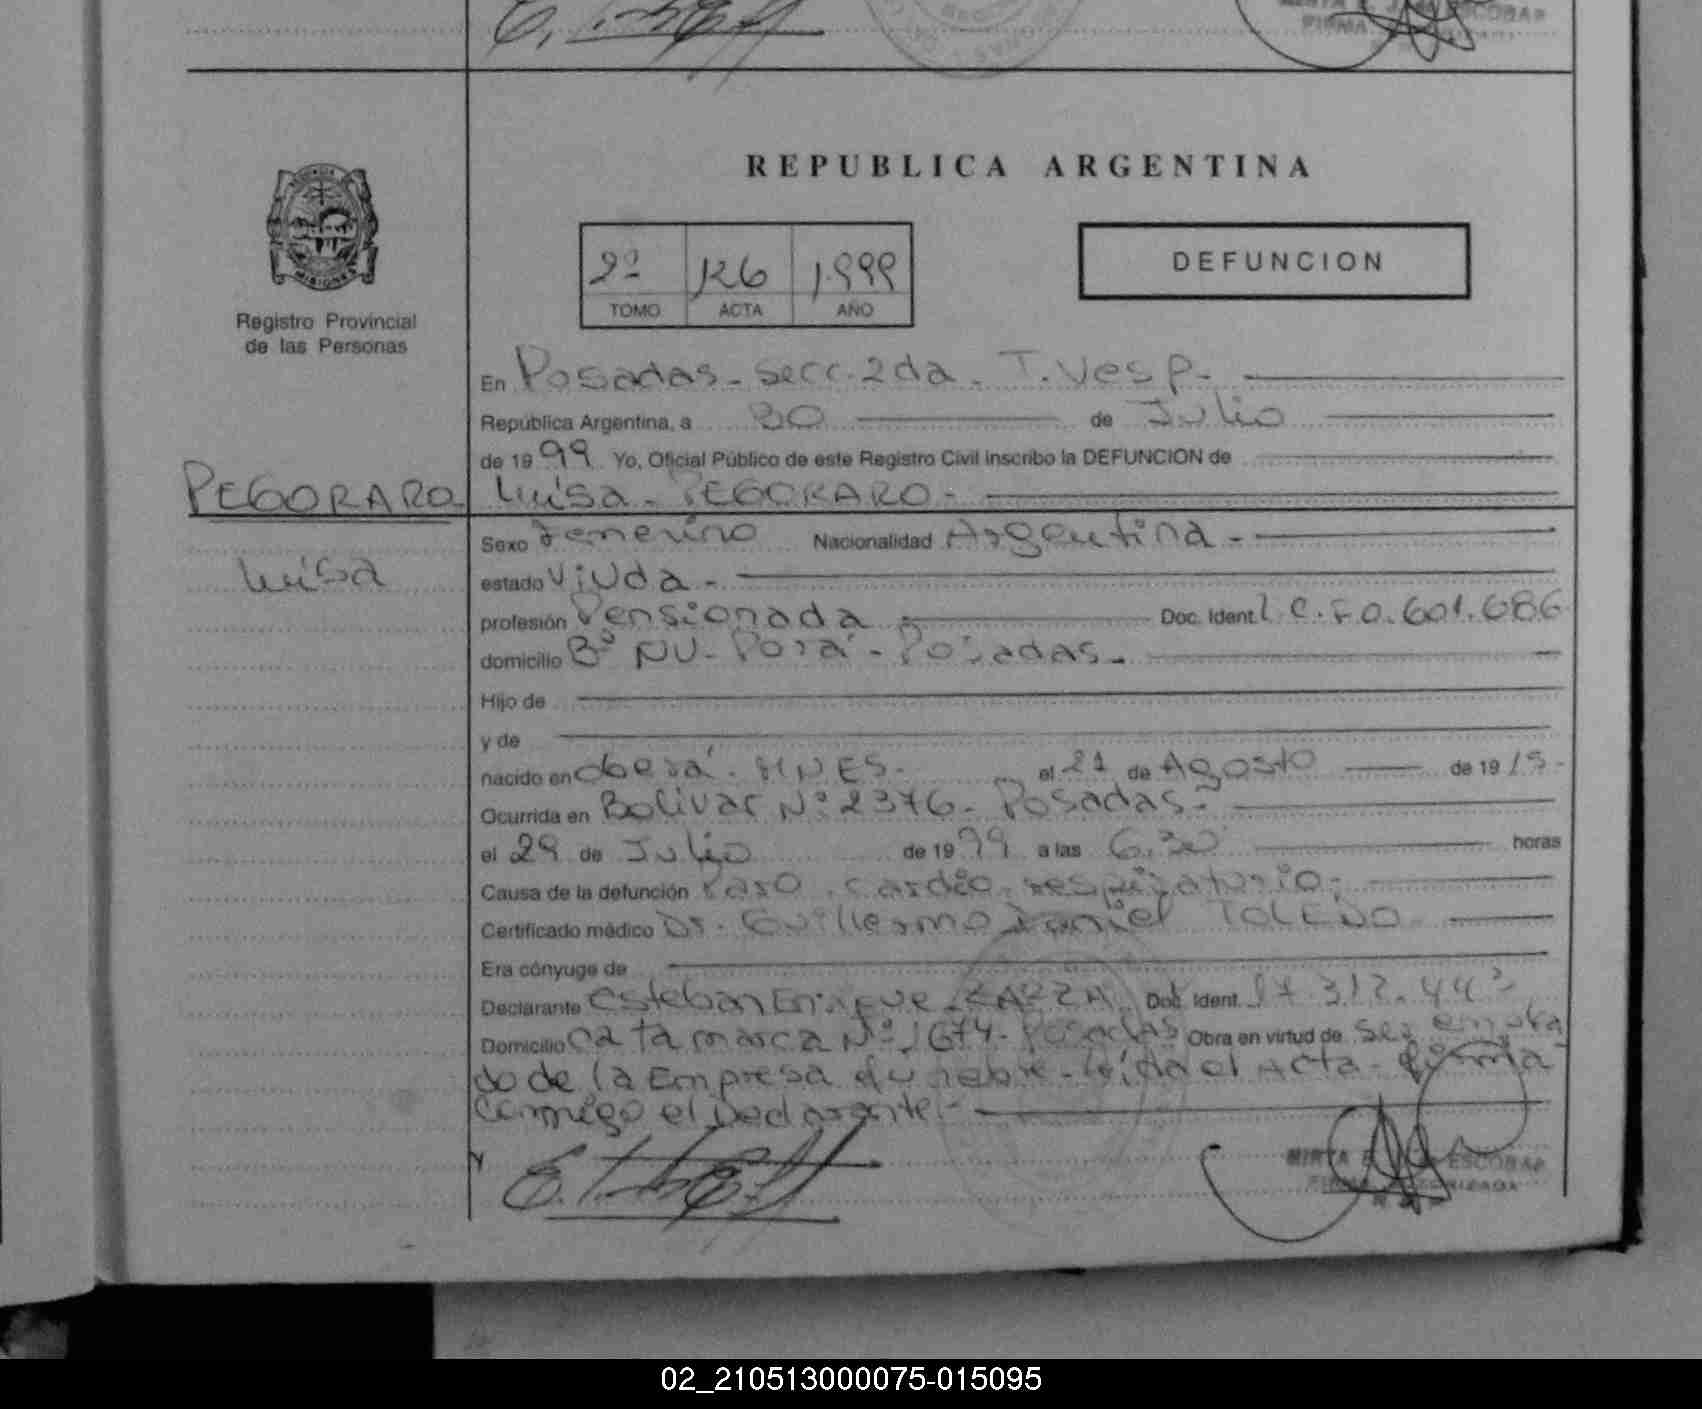 REPUBLICA ARGENTINA
MISIONES
Registro Provincial
de las Personas
2º 126 1.999
TOMO ACTA AÑO
DEFUNCION
En Posadas - secc. 2da. T. Vesp.
República Argentina, a 30 de Julio
de 1999 Yo, Oficial Público de este Registro Civil inscribo la DEFUNCION de
PEGORARO Luisa - PEGORARO -
Luisa
Sexo Femenino Nacionalidad Argentina -
estado Viuda -
profesión Pensionada Doc. Ident. L.C. 601.686
domicilio Bº Ñu - Porá - Posadas -
Hijo de
y de
nacido en Oberá. MNES. el 21 de Agosto de 1915 -
Ocurrida en Bolivar Nº 2376 - Posadas -
el 29 de Julio de 1999 a las 6.30 horas
Causa de la defunción Paro cardio respiratorio -
Certificado médico Dr. Guillermo Daniel TOLEDO
Era cónyuge de
Declarante Esteban Enrique Doc. Ident. 17.312.443
Domicilio Catamarca Nº 1674 - Posadas Obra en virtud de ser emplea
do de la Empresa funebre - leída el Acta - firma
conmigo el Declarante -
MIRTA ESCOBAR
FIRMA AUTORIZADA
02_210513000075-015095